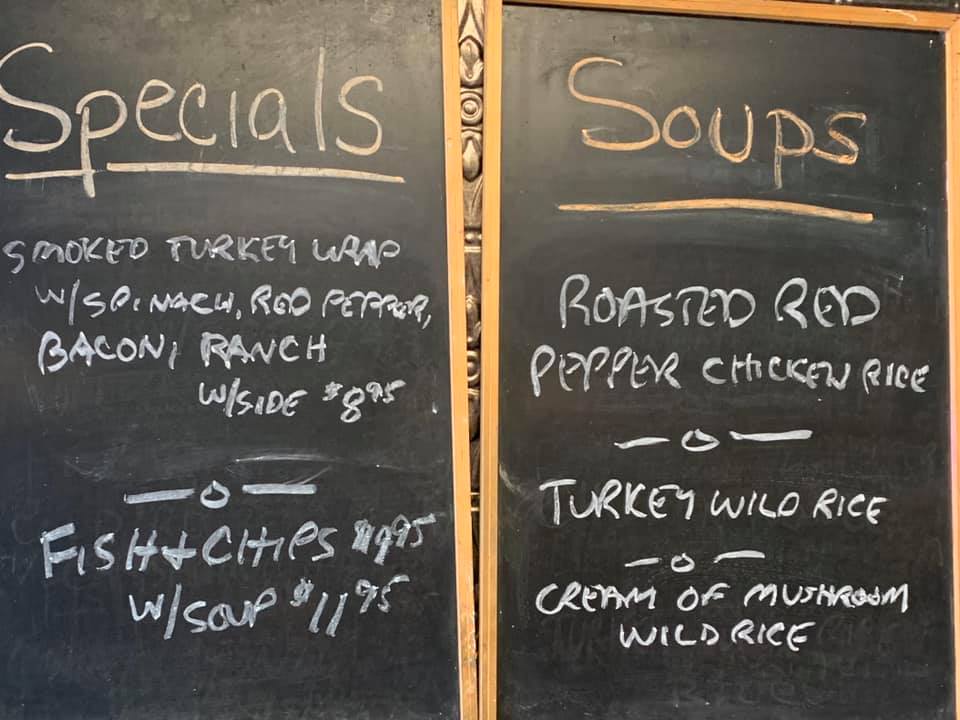 Specials
SMOKED TURKEY WRAP
W/SPINACH, RED PEPPER,
BACON, RANCH
W/SIDE $8.95
—o—
FISH & CHIPS $9.95
W/SOUP $11.95
Soups
ROASTED RED
PEPPER CHICKEN RICE
—o—
TURKEY WILD RICE
—o—
CREAM OF MUSHROOM
WILD RICE